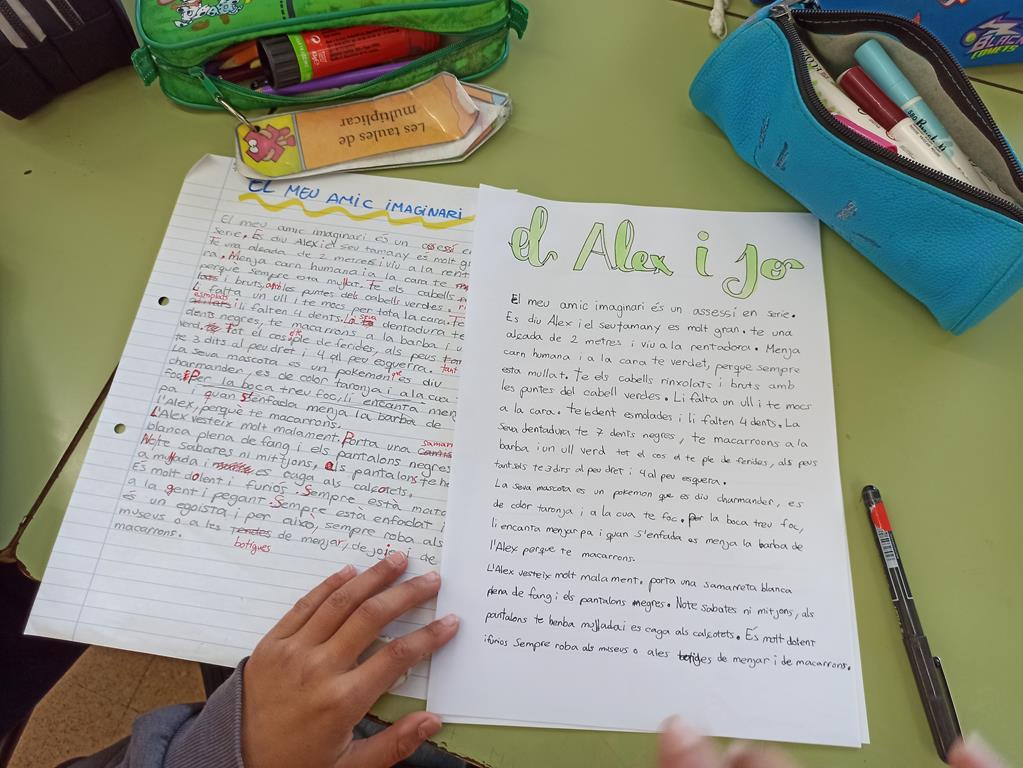 Les taules de
multiplicar
BLACK
COMETS
EL MEU AMIC IMAGINARI
El meu amic imaginari és un assessí en
serie. Es diu Alex i el seu tamany es molt
te una alçada de 2 metres i viu a la
Menja carn humana i a la cara te
perque sempre esta mullat. Te els cabells
i bruts, amb les puntes dels cabells verdes.
Li falta un ull i te mocs per tota la cara. te
esmolads i li falten 4 dents. la seva dentadura te
dents negres, te macarrons a la barba i u
verd. Tot el cos ple de ferides, als peus
te 3 dits al peu dret i 4 al peu esquerra. tant
La seva mascota es un pokemon que es diu
charmander, es de color taronja i a la cua
foc. Per la boca treu foc, li encanta men
pa i quan s'enfada menja la barba de
l'Alex, perque te macarrons.
L'Alex vesteix molt malament. Porta una samar
blanca plena de fang i els pantalons negres
No te sabates ni mitjons, als pantalons te
mullada i es caga als calçotets.
Es molt dolent i furios. Sempre està
a la gent i pegant. Sempre esta enfadat i
és un egoista i per això, sempre roba als
museus o a les botigues de menjar, de joies i de
macarrons.
el Alex i jo
El meu amic imaginari és un assessí en serie.
Es diu Alex i el seu tamany es molt gran. te una
alçada de 2 metres i viu a la pentadora. Menja
carn humana i a la cara te verdet, perque sempre
esta mullat. Te els cabells rinxolats i bruts amb
les puntes del cabell verdes. Li falta un ull i te mocs
a la cara. te 6 dent esmolades i li falten 4 dents. La
seva dentadura te 7 dents negres, te macarroons a la
barba i un ull verd tot el cos el te ple de ferides, als peus
tant sols te 3 dits al peu dret i 4 al peu esquera.
La seva mascota es un pokemon que es diu charmander, es
de color taronja i a la cua te foc. Per la boca treu foc,
li encanta menjar pa i quan s'enfada es menja la barba de
l'Alex perque te macarrons.
L'Alex vesteix molt malament. porta una samarreta blanca
plena de fang i els pantalons negres. No te sabates ni mitjons, als
pantalons te mullada i es caga als calçotets. És molt dolent
i furios Sempre roba als museus o a les botiges de menjar i de macarrons.